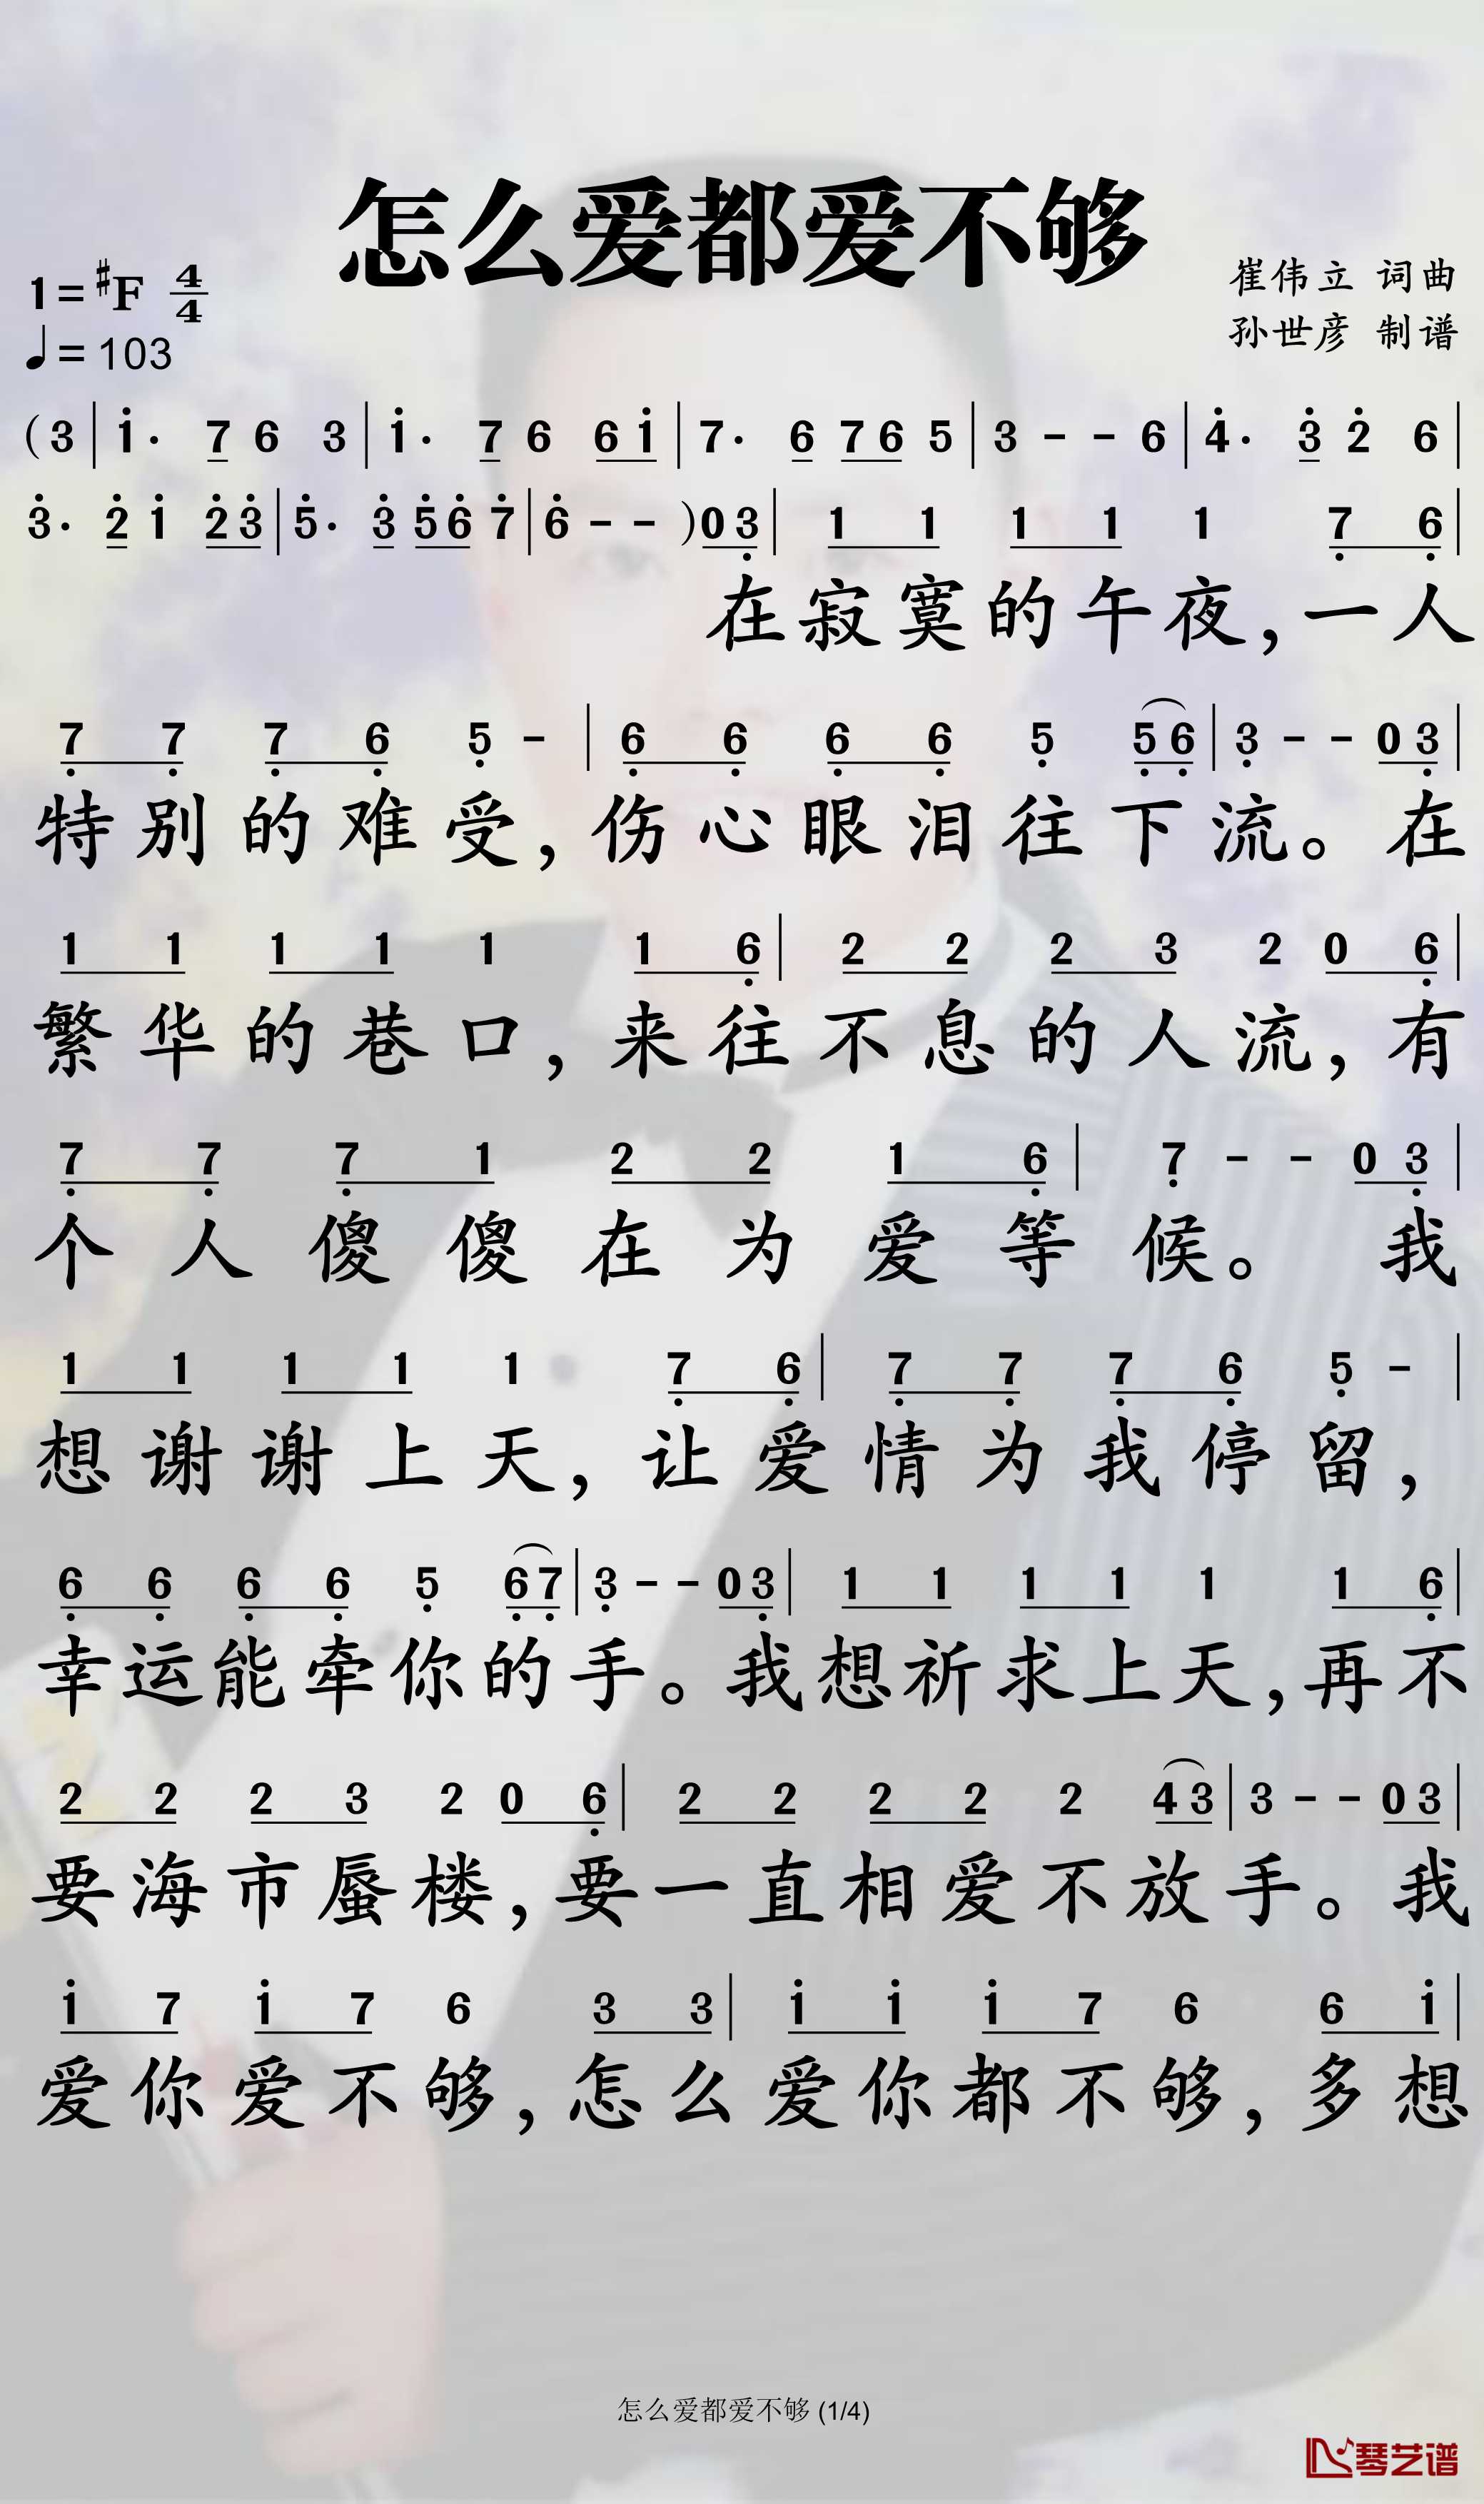 怎么爱都爱不够
1=♯F 4/4
♩=103
崔伟立 词曲
孙世彦 制谱
(3 | i· 7 6 3 | i· 7 6 6 i | 7· 6 7 6 5 | 3 - - 6 | 4̇· 3̇ 2̇ 6 |
3̇· 2̇ i 2̇ 3̇ | 5̇· 3̇ 5̇ 6̇ 7̇ | 6̇ - - ) 0 3̣ | 1 1 1 1 1 7̣ 6̣ |
在寂寞的午夜,一人
7̣ 7̣ 7̣ 6̣ 5̣ - | 6̣ 6̣ 6̣ 6̣ 5̣ 5̣ 6̣ | 3̣ - - 0 3̣ |
特别的难受,伤心眼泪往下流。在
1 1 1 1 1 1 6̣ | 2 2 2 3 2 0 6̣ |
繁华的巷口,来往不息的人流,有
7̣ 7̣ 7̣ 1 2 2 1 6̣ | 7̣ - - 0 3̣ |
个人傻傻在为爱等候。我
1 1 1 1 1 7̣ 6̣ | 7̣ 7̣ 7̣ 6̣ 5̣ - |
想谢谢上天,让爱情为我停留,
6̣ 6̣ 6̣ 6̣ 5̣ 6̣ 7̣ | 3̣ - - 0 3̣ | 1 1 1 1 1 1 6̣ |
幸运能牵你的手。我想祈求上天,再不
2 2 2 3 2 0 6̣ | 2 2 2 2 2 4 3 | 3 - - 0 3 |
要海市蜃楼,要一直相爱不放手。我
i 7 i 7 6 3 3 | i i i 7 6 6 i |
爱你爱不够,怎么爱你都不够,多想
怎么爱都爱不够 (1/4)
琴艺谱